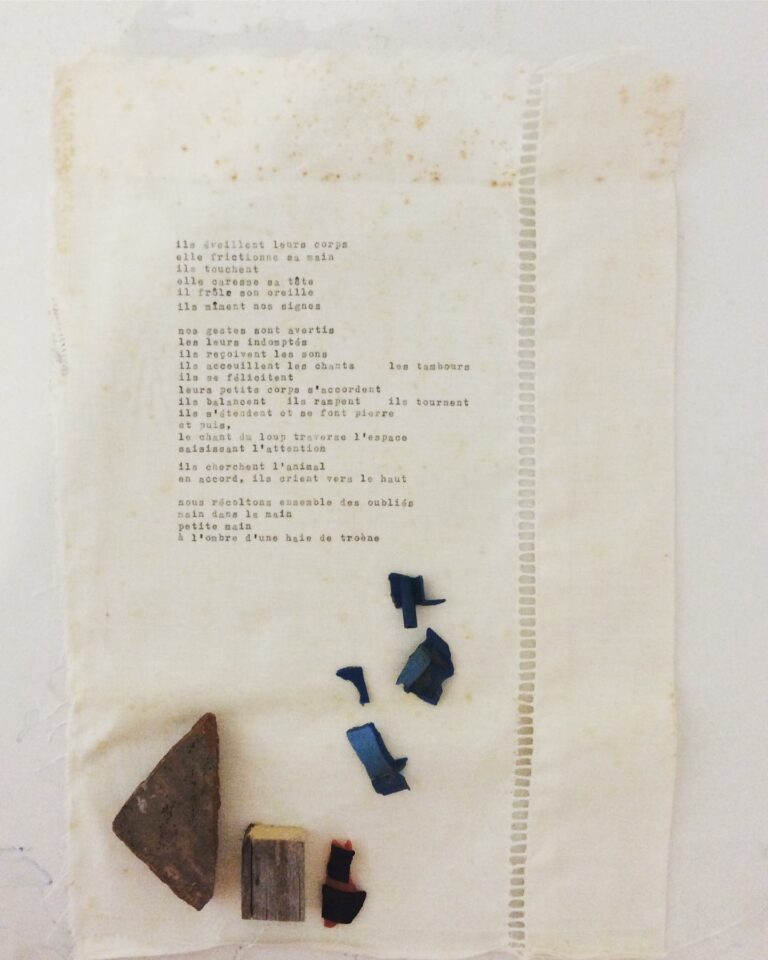 ils éveillent leurs corps
elle frictionne sa main
ils touchent
elle caresse sa tête
il frôle son oreille
ils mîment nos signes
nos gestes sont avertis
les leurs indomptés
ils reçoivent les sons
ils acceuillent les chants les tambours
ils se félicitent
leurs petits corps s'accordent
ils balancent ils rampent ils tournent
ils s'étendent et se font pierre
et puis,
le chant du loup traverse l'espace
saisissant l'attention
ils cherchent l'animal
en accord, ils crient vers le haut
nous récoltons ensemble des oubliés
main dans la main
petite main
à l'ombre d'une haie de troène